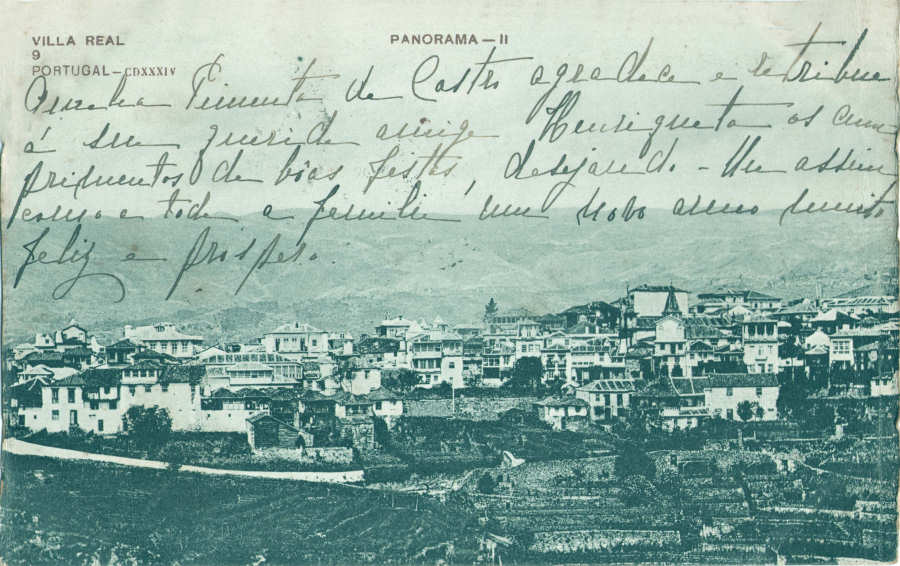 VILLA REAL
9
PORTUGAL—CDXXXIV
PANORAMA—II
Pimenta de Castro agradece e retribue
á seu querido amigo Henriqueta os cum
primentos de bôas festas, desejando-lhe assim
como e toda a familia um novo anno muito
feliz e prospero.